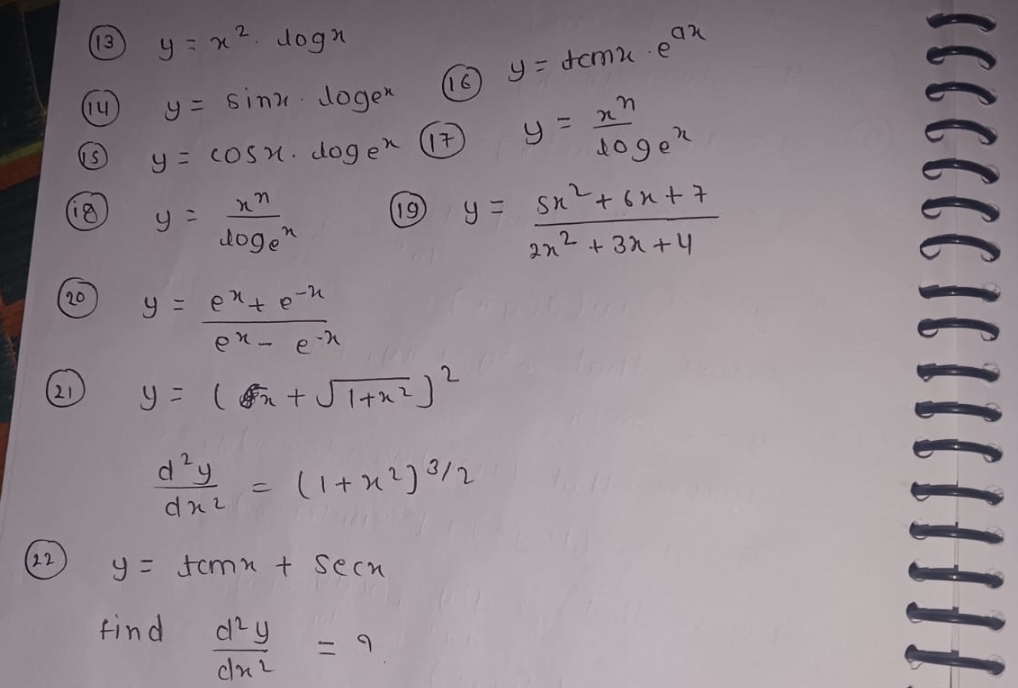 (13) y = x². log x
(14) y = sinx. logeˣ (16) y = tanx. eᵃˣ
(15) y = cosx. logeˣ (17) y = xⁿ / logeˣ
(18) y = xⁿ / logeˣ (19) y = 5x² + 6x + 7 / 2x² + 3x + 4
(20) y = eˣ + e⁻ˣ / eˣ - e⁻ˣ
(21) y = (x + √1+x²)²
d²y / dx² = (1+x²)³/²
(22) y = tanx + secx
find d²y / dx² = ?